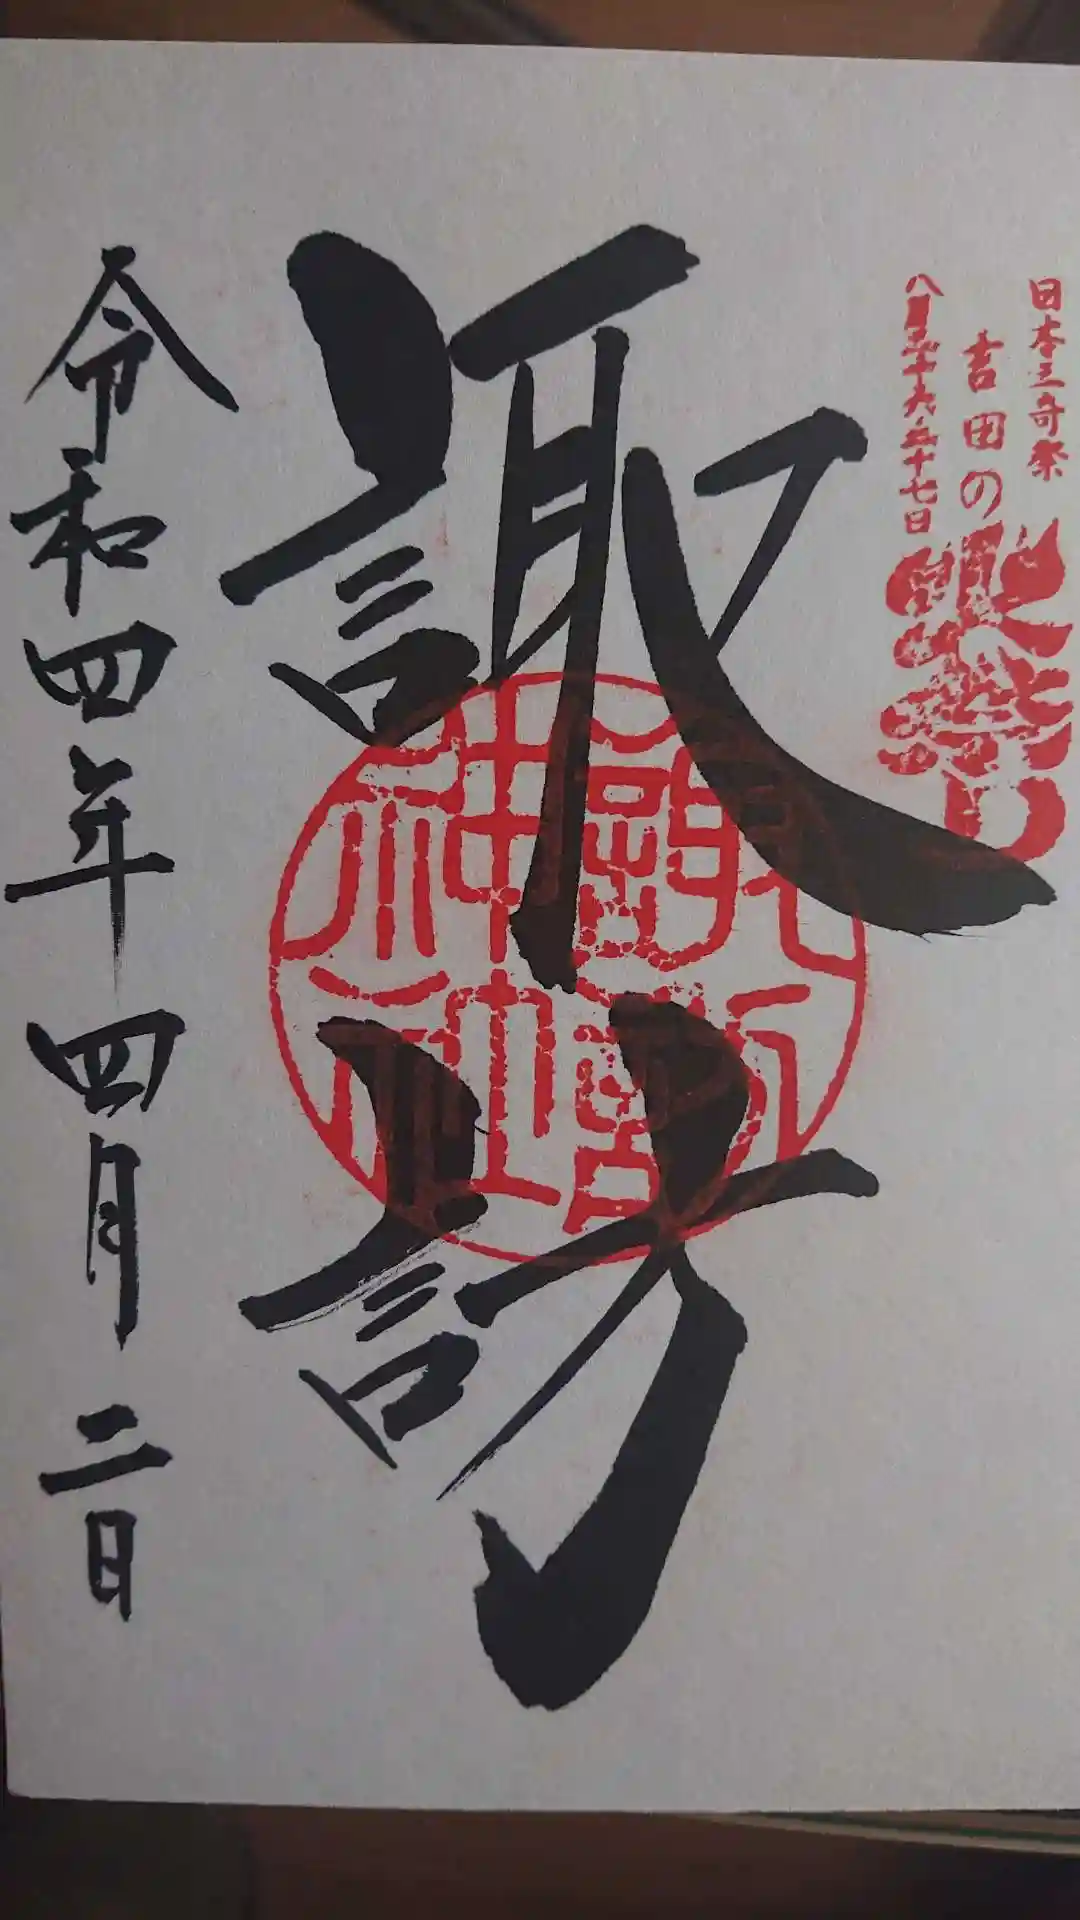 日本三奇祭
吉田の火祭り
八月二十六、二十七日
諏訪
諏訪神社
令和四年四月二日